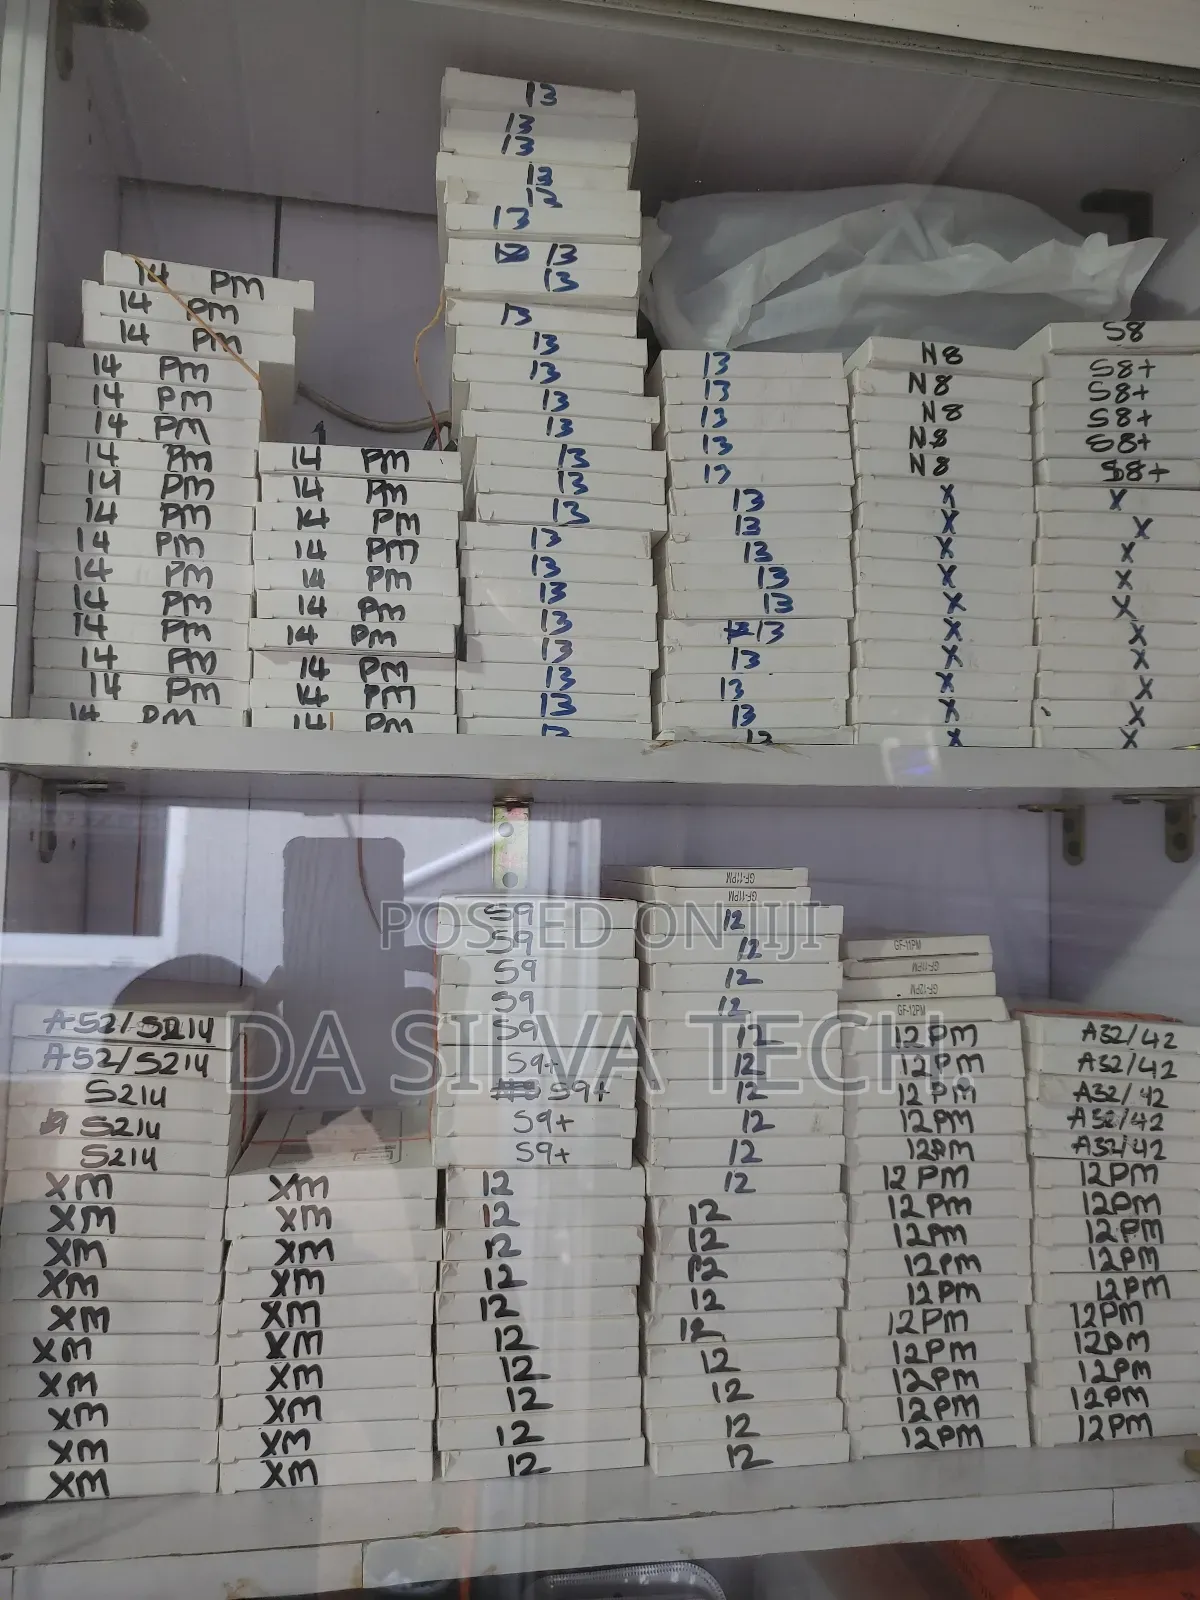 14 PM
14 PM
14 PM
14 PM
14 PM
14 PM
14 PM
14 PM
14 PM
14 PM
14 PM
14 PM
14 PM
14 PM
14 PM
14 PM
14 PM
14 PM
14 PM
14 PM
14 PM
14 PM
14 PM
14 PM
14 PM
14 PM
13
13
13
13
13
13
13
13
13
13
13
13
13
13
13
13
13
13
13
13
13
13
13
13
13
13
13
13
13
13
13
13
13
13
13
13
13
N8
N8
N8
N8
N8
X
X
X
X
X
X
X
X
X
X
S8
S8+
S8+
S8+
S8+
S8+
X
X
X
X
X
X
X
X
X
X
POSTED ON JIJI
DA SILVA TECH.
A52/S21U
A52/S21U
S21U
S21U
S21U
XM
XM
XM
XM
XM
XM
XM
XM
XM
XM
XM
XM
XM
XM
XM
XM
XM
XM
XM
XM
S9
S9
S9
S9
S9
S9+
S9+
S9+
S9+
12
12
12
12
12
12
12
12
12
12
GF-11PM
GF-11PM
12
12
12
12
12
12
12
12
12
12
12
12
12
12
12
12
12
12
12
GF-11PM
GF-11PM
GF-12PM
GF-12PM
12PM
12PM
12PM
12PM
12PM
12PM
12PM
12PM
12PM
12PM
12PM
12PM
12PM
12PM
12PM
A32/42
A32/42
A32/42
A32/42
A32/42
12PM
12PM
12PM
12PM
12PM
12PM
12PM
12PM
12PM
12PM